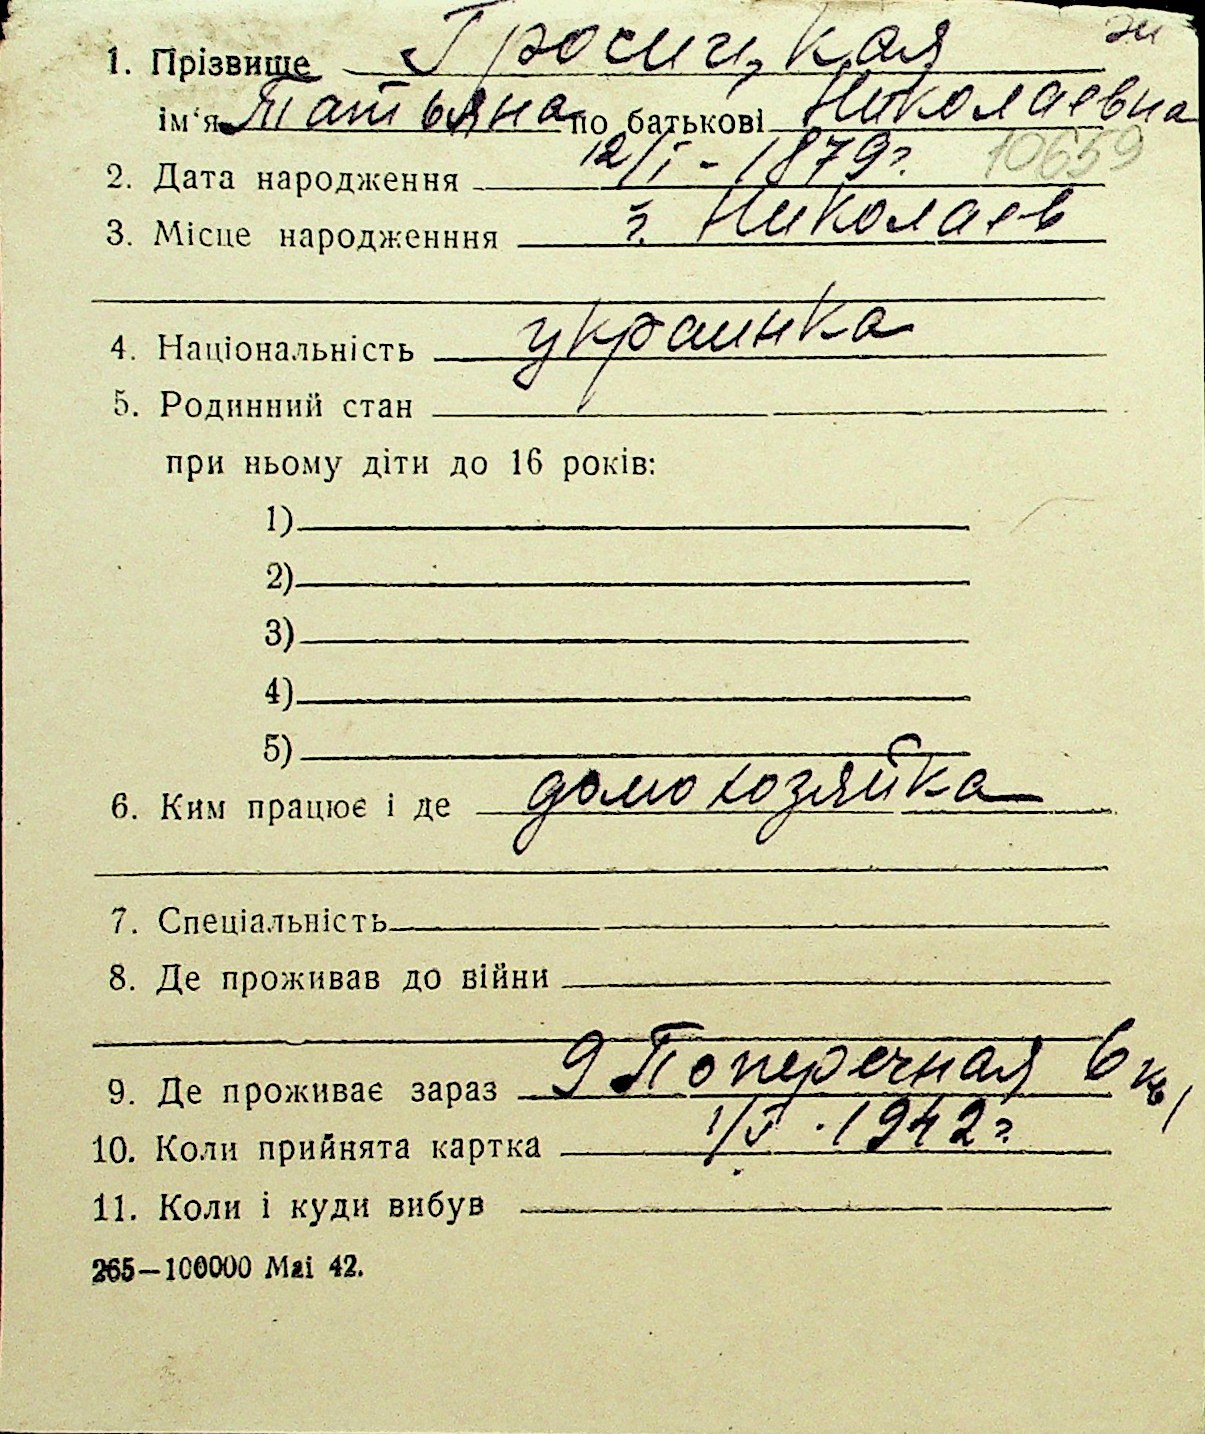 1. Прізвище Тросицкая
ім'я Татьяна по батькові Николаевна
10659
2. Дата народження 12/I - 1879 г.
3. Місце народженння г. Николаев
4. Національність украинка
5. Родинний стан
при ньому діти до 16 років:
1)
2)
3)
4)
5)
6. Ким працює і де домохозяйка
7. Спеціальність
8. Де проживав до війни
9. Де проживає зараз 9 Поперечная 6 кв 1
10. Коли прийнята картка 1/V · 1942 г.
11. Коли і куди вибув
265—100000 Mai 42.